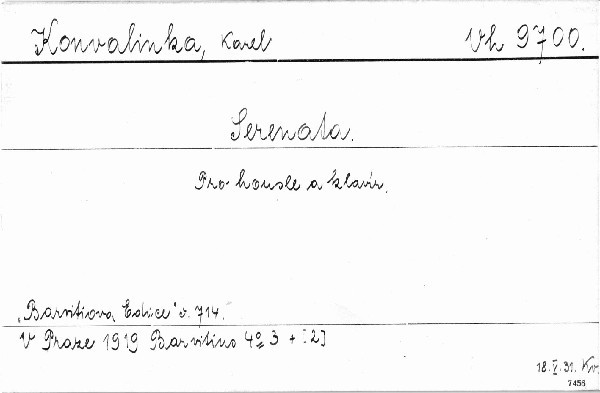 Konvalinka, Karel Vh 9700.
Serenata.
Pro housle a klavír.
„Barvitiova Edice" č. 714.
V Praze 1919 Barvitius 4º 3 + [2]
18.V.31. Kv.
7456